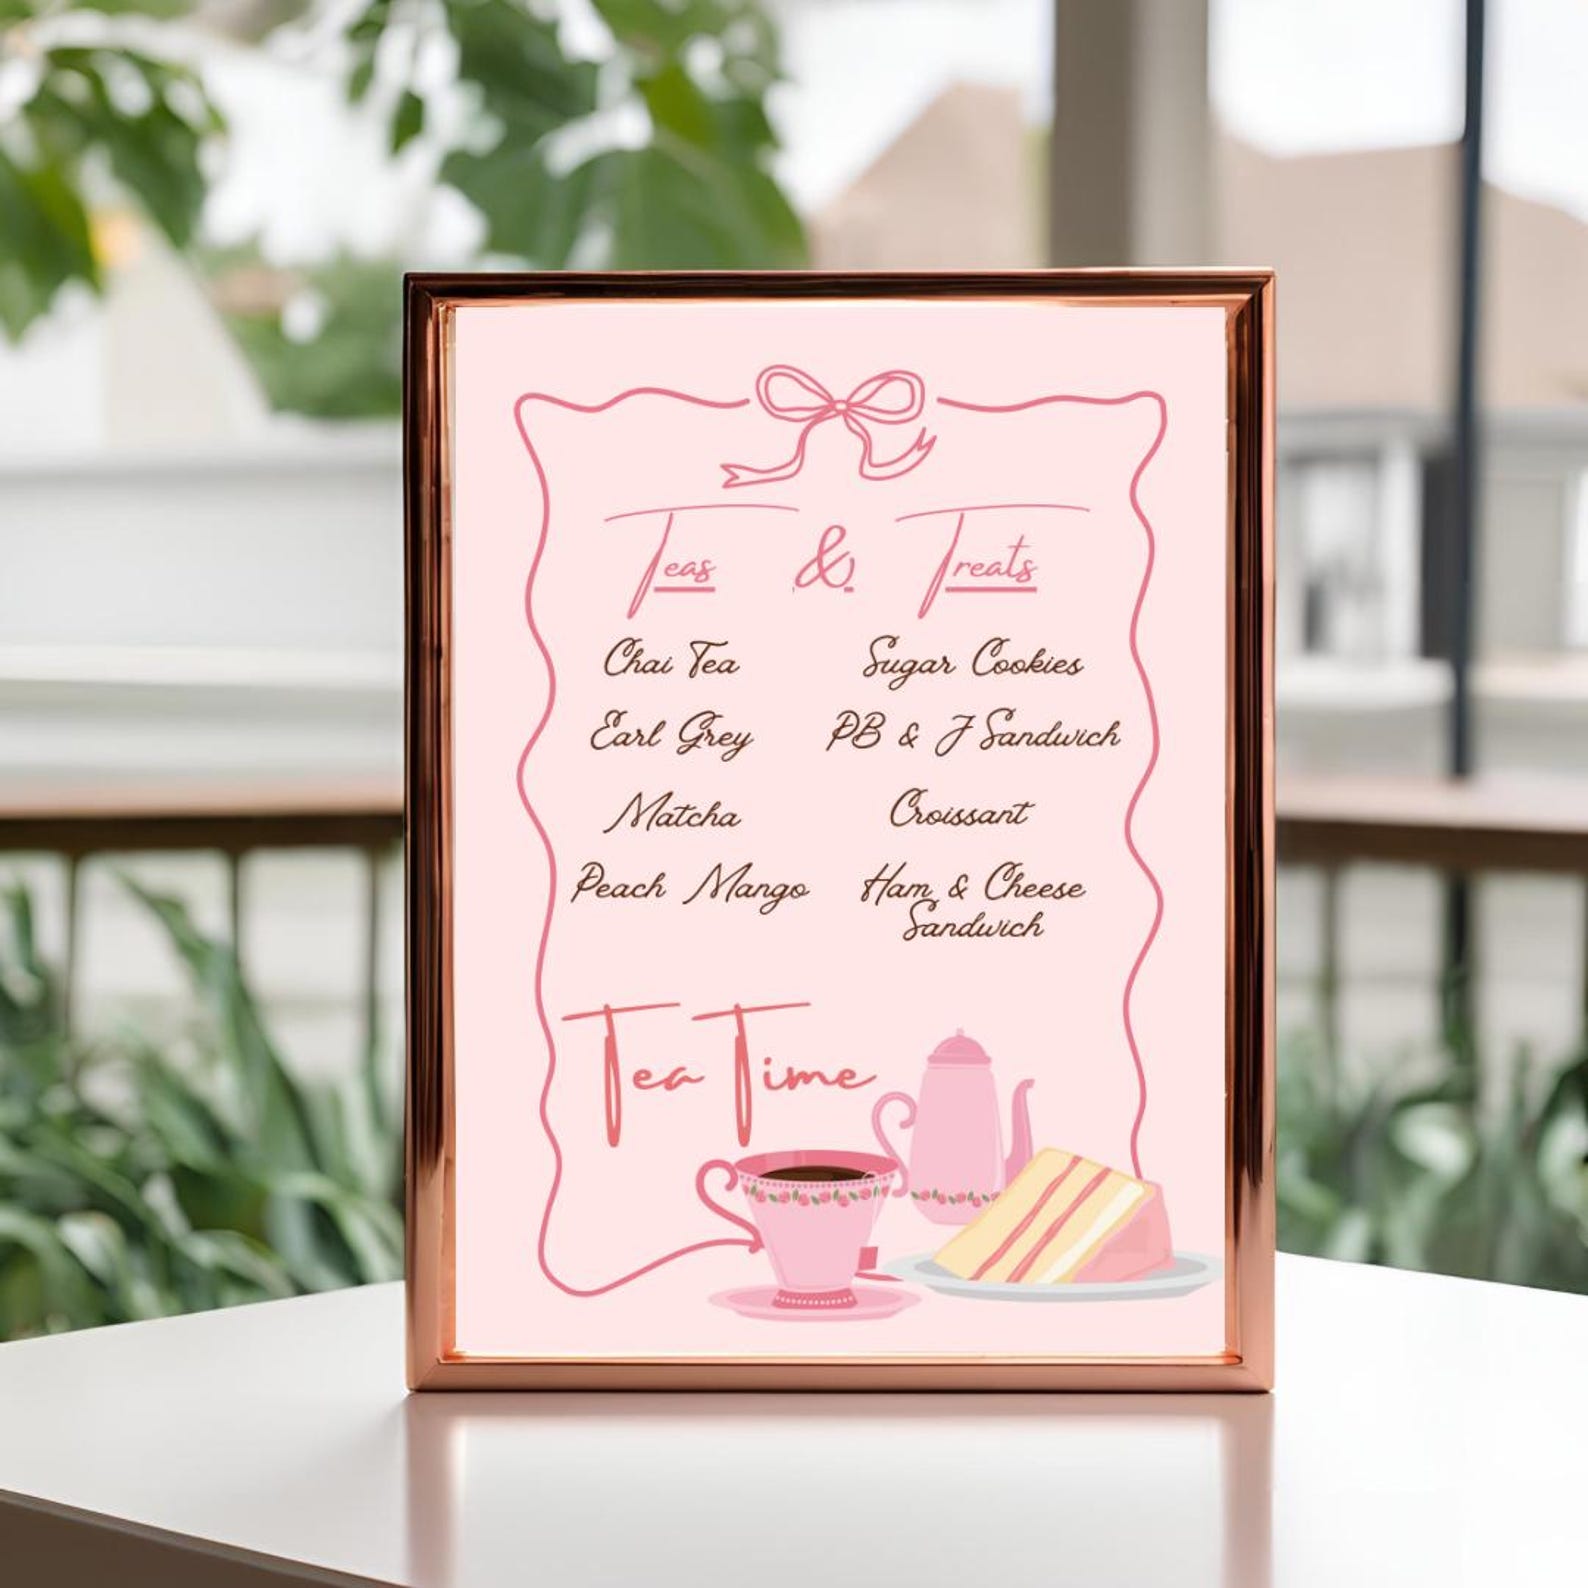 Teas & Treats
Chai Tea
Sugar Cookies
Earl Grey
PB & J Sandwich
Matcha
Croissant
Peach Mango
Ham & Cheese
Sandwich
Tea Time